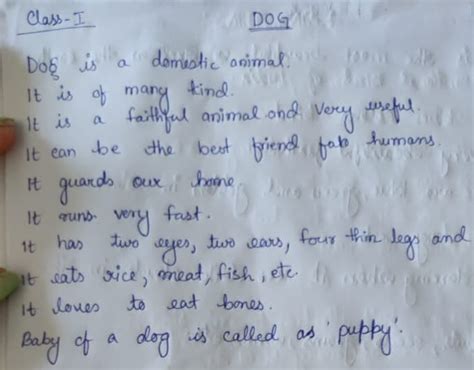 Class-I DOG
Dog is a domestic animal.
It is of many kind.
It is a faithful animal and very useful.
It can be the best friend humans.
It guards our home
It runs very fast.
It has two eyes, two ears, four thin legs and
It eats rice, meat, fish, etc.
It loves to eat bones.
Baby of a dog is called as 'puppy'.